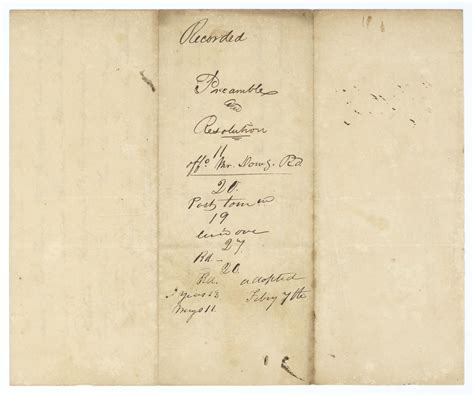 Recorded
Preamble
&
Resolution
11
offd Mr. Dowg. Rd.
20.
Postponed
19
laid over
27
Rd. —
20.
Rd. adopted
Ayes 13 Feby 7th
11